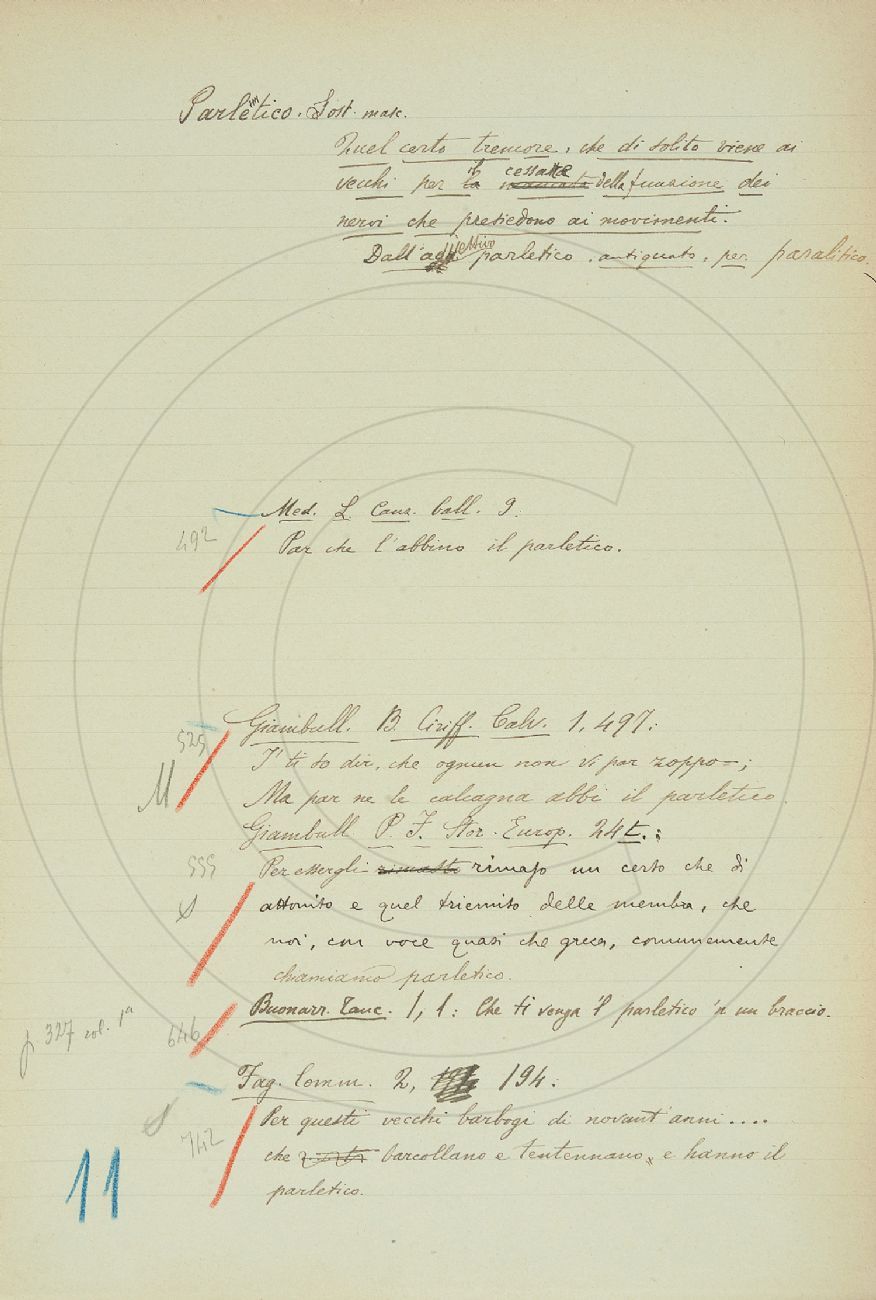 Parletico. Sost. masc.
Quel certo tremore, che di solito viene ai
vecchi per il cessare della funzione dei
nervi che presiedono ai movimenti.
Dall'adjettivo parletico, antiquato, per paralitico.
Med. L. Canz. ball. 9.
492
Par che l'abbino il parletico.
Giambull. B. Ciriff. Calv. 1, 497:
525
I' ti so dir, che ognun non vi par zoppo;
M
Ma par ne le calcagna abbi il parletico.
Giambull P. F. Stor. Europ. 24t.:
555
Per essergli rimaso un certo che di
attonito e quel triemito delle membra, che
noi, con voce quasi che greca, comunemente
chiamiamo parletico.
Buonarr. Tanc. 1, 1: Che ti venga 'l parletico 'n un braccio.
p 327 col. 1a
646
Fag. Comm. 2, 194:
Per questi vecchi barbogi di novant'anni....
742
che barcollano e tentennano, e hanno il
parletico.
11